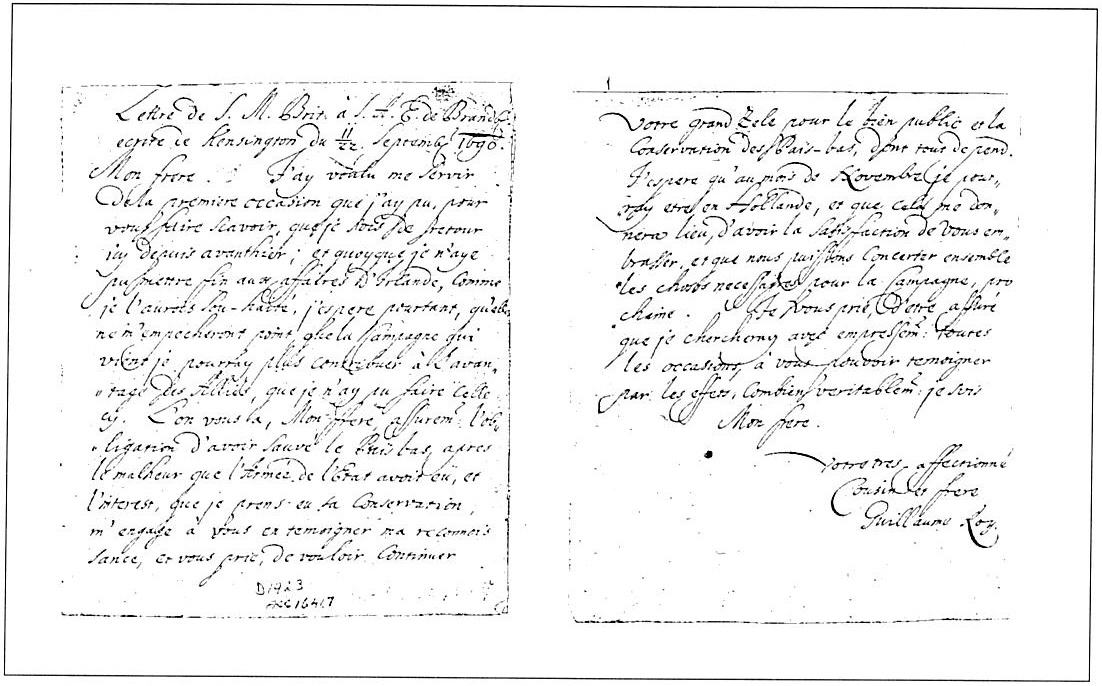 Lettre de S. M. Brit. à S. A. E. de Brandb.
ecrite de Kensington du 11/22 Septembr 1690.
Mon frere. J'ay voulu me servir
de la premiere occasion que j'ay pu, pour
vous faire scavoir, que je suis de retour
icy depuis avanthier; et quoyque je n'aye
pu mettre fin aux affaires d'Irlande, comme
je l'aurois souhaité, j'espere pourtant, qu'elles
ne m'empecheront point, que la Campagne qui
vient je pourray plus contribuer à l'avan„
„tage des Alliés, que je n'ay pu faire celle
cy. L'on vous a, Mon frere, assurem.t l'ob„
„ligation d'avoir sauvé le Pais bas, apres
le malheur que l'Armée de l'Etat avoit eü, et
l'interest, que je prens en sa Conservation,
m'engage à vous en temoigner ma reconnois
sance, et vous prie, de vouloir Continuer
D1923
16417
Votre grand Zele pour le bien public et la
Conservation des Pais-bas, dont tout depend.
J'espere qu'au mois de Novembre je pour„
ray etre en Hollande, et que cela me don„
nera lieu, d'avoir la satisfaction de vous em„
brasser, et que nous puissions Concerter ensemble
les choses necessaires pour la Campagne, pro
chaine. Je Vous prie, d'etre assuré
que je chercheray avec empressem.t toutes
les occasions, à vous pouvoir temoigner
par les effets, Combien veritablem.t je suis
Mon frere.
Votre tres affectionné
Cousin et frere
Guillaume Roy.